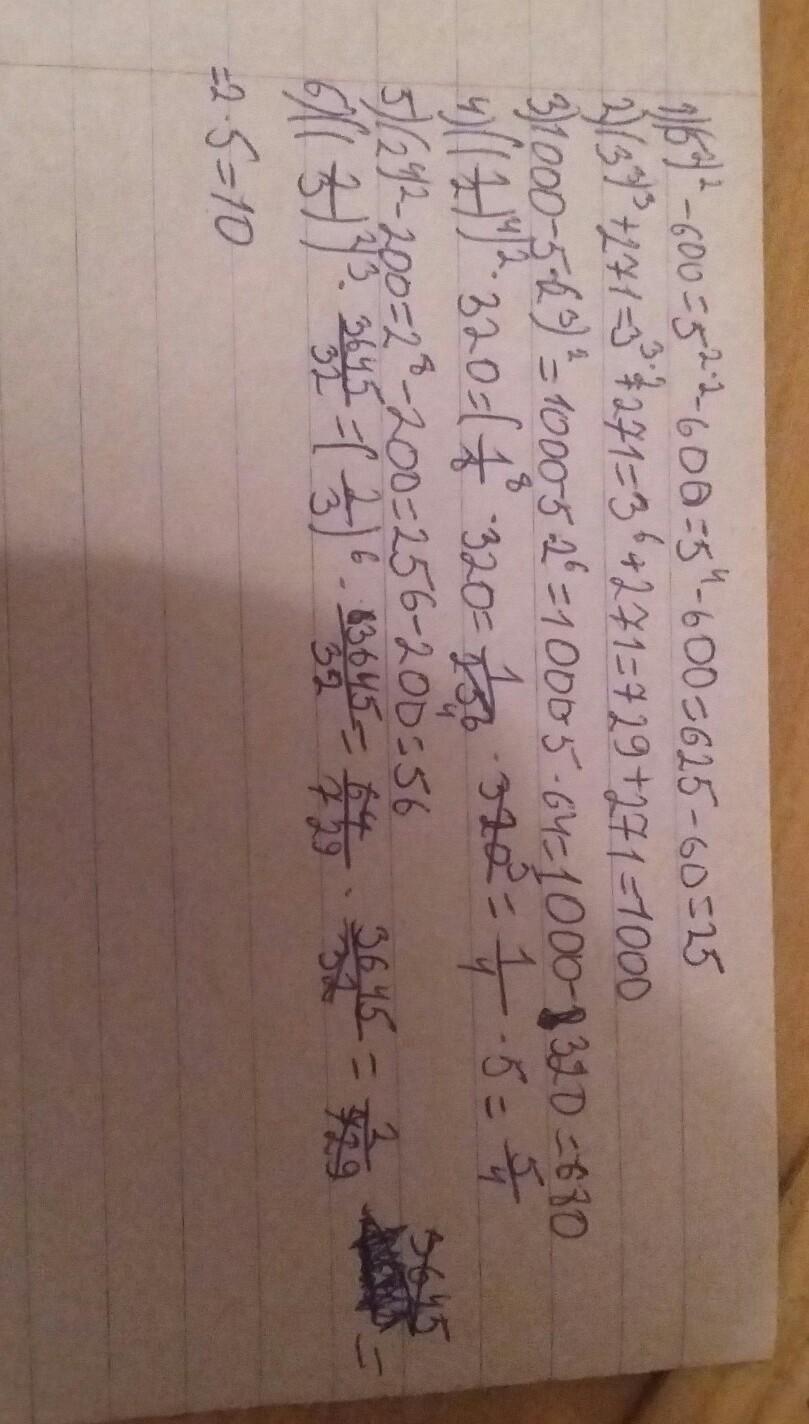 1) (5²)² - 600 = 5²·² - 600 = 5⁴ - 600 = 625 - 60 = 25
2) (3³)³ + 271 = 3³·² + 271 = 3⁶ + 271 = 729 + 271 = 1000
3) 1000 - 5·(2³)² = 1000 - 5·2⁶ = 1000 - 5·64 = 1000 - 320 = 680
4) ((1/2)⁴)²·320 = (1/2⁸·320 = 1/256·320 = 1/4·5 = 5/4
5) (2⁴)² - 200 = 2⁸ - 200 = 256 - 200 = 56
6) ((2/3)²)³·3645/32 = (2/3)⁶·3645/32 = 64/729·3645/32 = 2/729 3645 =
= 2·5 = 10